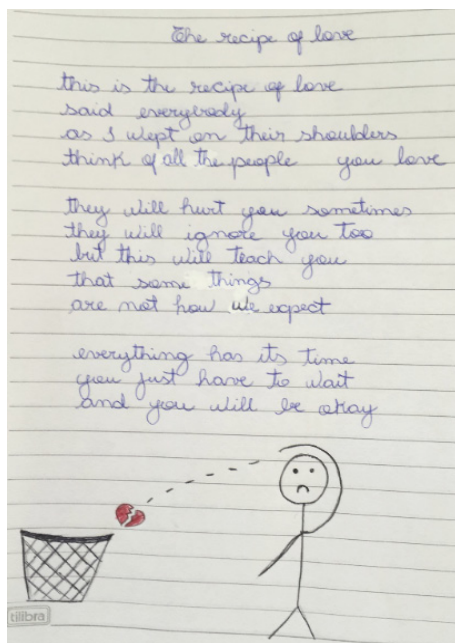 The recipe of love
this is the recipe of love
said everybody
as I wept on their shoulders
think of all the people you love
they will hurt you sometimes
they will ignore you too
but this will teach you
that some things
are not how we expect
everything has its time
you just have to wait
and you will be okay
tilibra